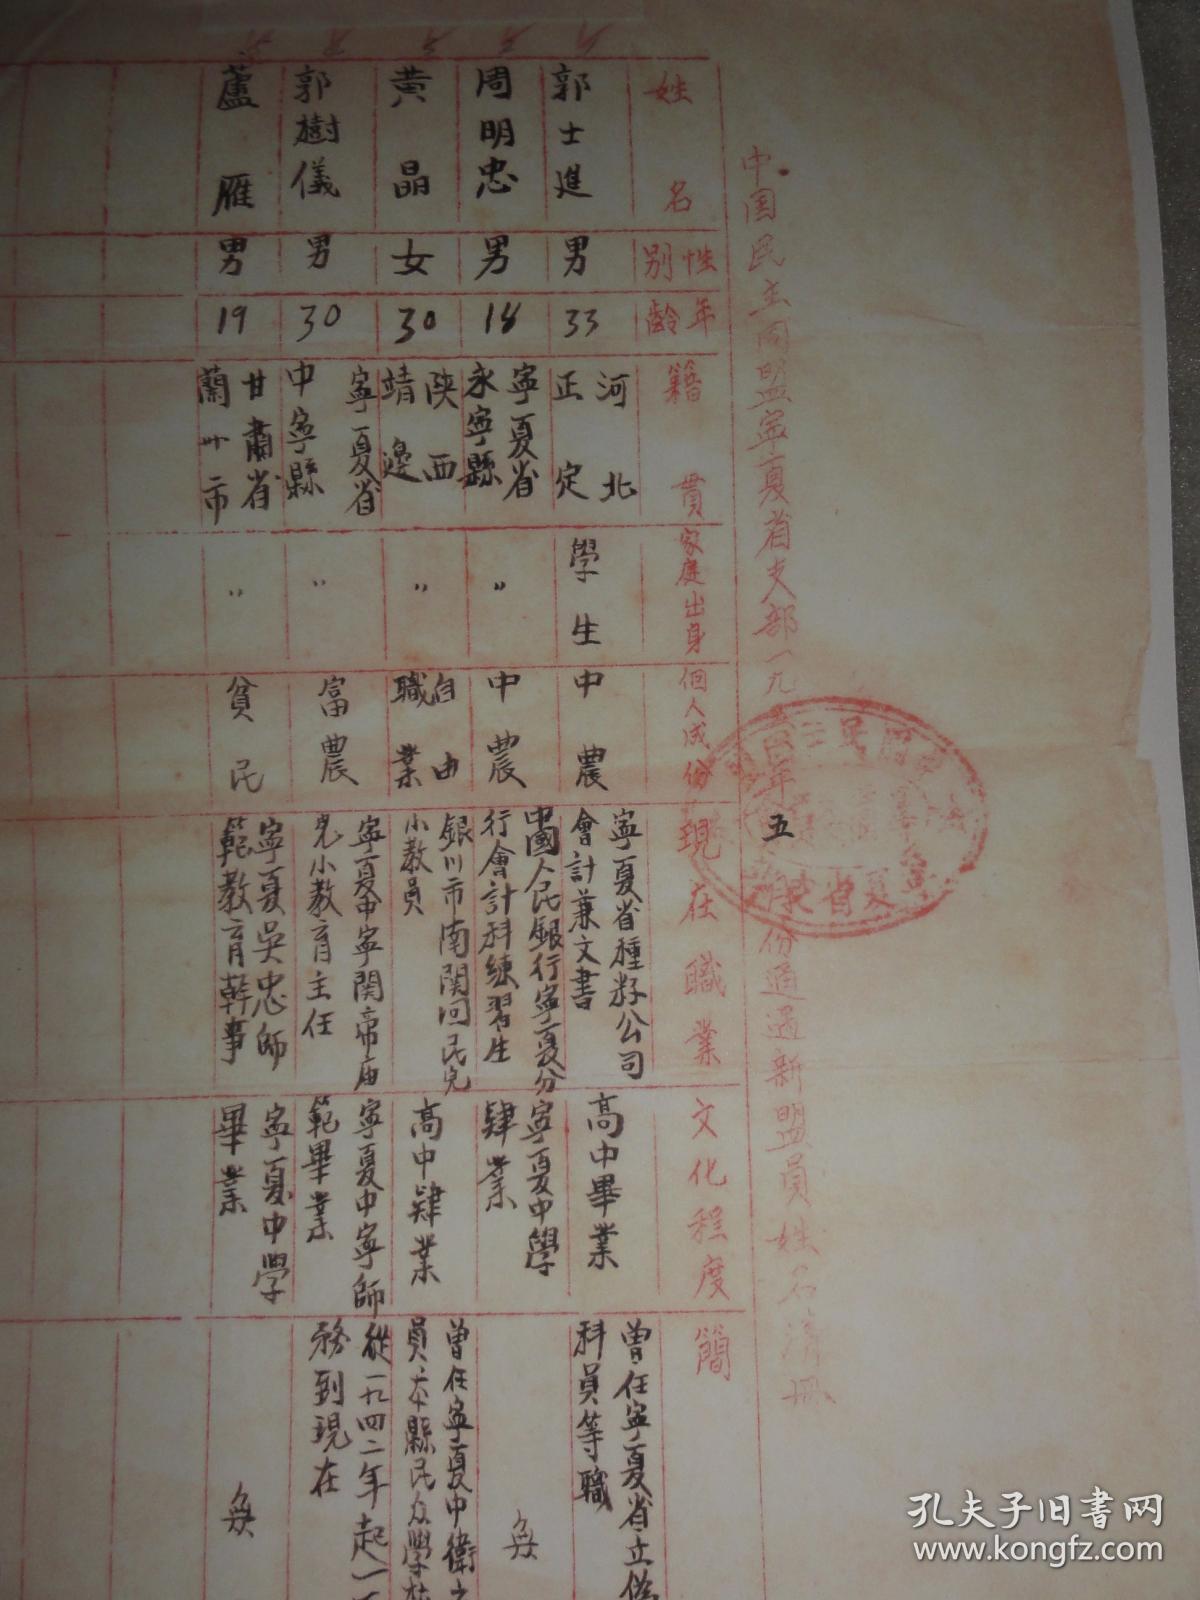 中国民主同盟寧夏省支部一九五四年五月份通過新盟員姓名清冊
姓名
性別
年齡
籍貫
家庭出身
個人成份
現在職業
文化程度
簡
郭士進
男
33
河北
正定
學生
中農
寧夏省種籽公司
會計兼文書
高中畢業
曾任寧夏省立
科員等職
周明忠
男
18
寧夏省
永寧縣
〃
中農
中國人民銀行寧夏分
行會計科練習生
寧夏中學
肄業
無
黃晶
女
30
陝西
靖邊
〃
自由
職業
銀川市南関回民完
小教員
高中肄業
曾任寧夏中衛
員本縣民众學校
郭樹儀
男
30
寧夏省
中寧縣
〃
富農
寧夏中寧関帝庙
完小教育主任
寧夏中寧師
範畢業
從一九四二年起一
務到現在
蘆雁
男
19
甘肅省
蘭州市
〃
貧民
寧夏吳忠師
範教育幹事
寧夏中學
畢業
無
孔夫子旧书网
www.kongfz.com